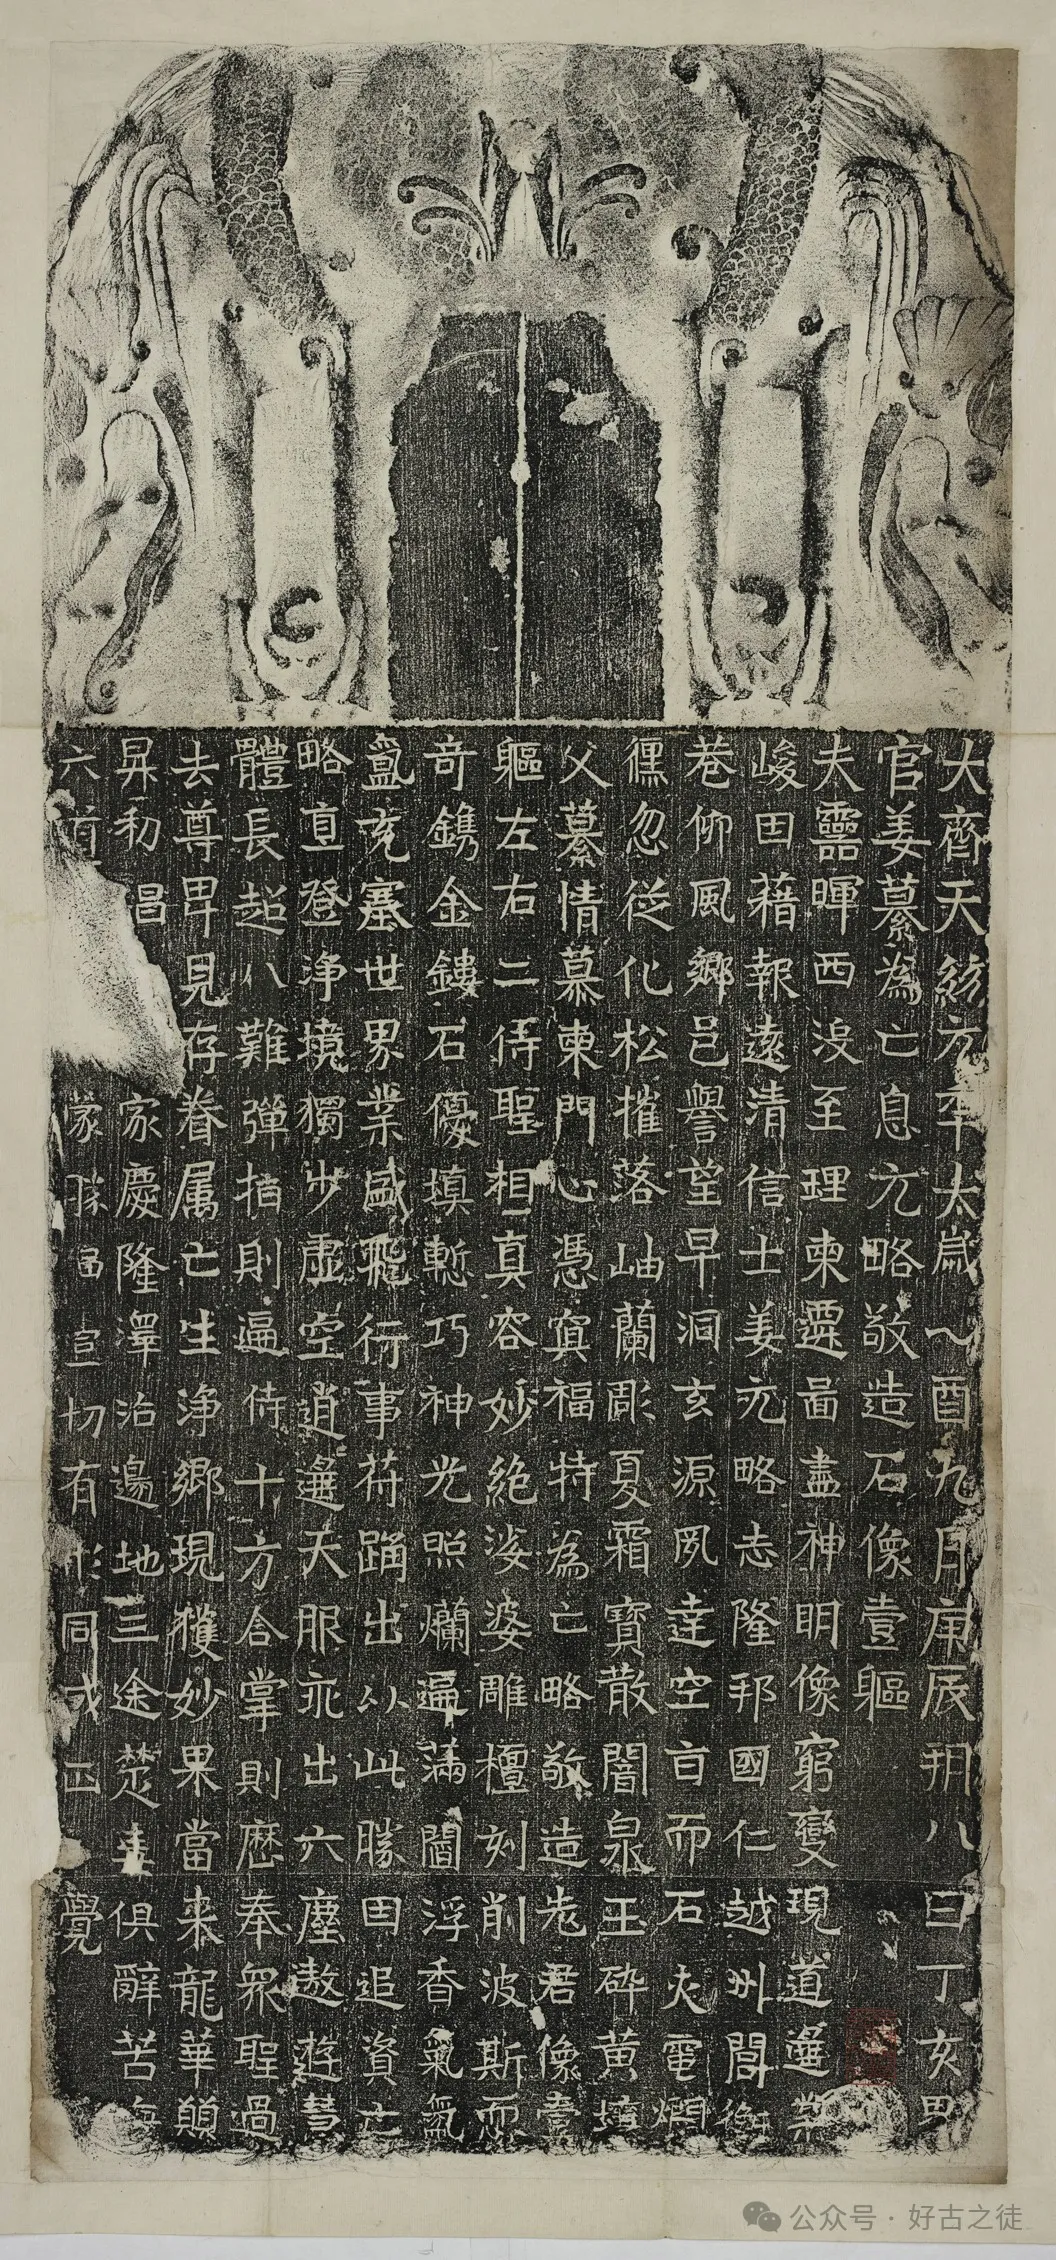 大齊天統元年太歲乙酉九月庚辰朔八日丁亥
官姜纂為亡息元略敬造石像壹軀
夫靈暉西没至理東遷啚盡神明像窮變現道遷
峻田藉報遠清信士姜元略志隆邦國仁越州閭
巷仰風鄉邑譽望早洞玄源夙達空旨而石火電爓
儵忽從化松摧落岫蘭彫夏霜寶散闇泉玉碎黃壤
父纂情慕東門心憑冥福特為亡略敬造老君像壹
軀左右二侍聖相真容妙絕娑婆雕檀刻削波斯而
奇鐫金鏤石優填慙巧神光照爛遍滿閻浮香氣氤
氳充塞世界業盛飛行事苻踊出以此勝田追資亡
略直登淨境獨步虛空逍遙天服永出六塵遨遊慧
體長超八難彈指則遍侍十方合掌則歷奉眾聖過
去尊卑見存眷属亡生淨鄉現獲妙果當來龍華願
昇初 昌 家慶隆澤洽邊地三途楚毒俱辭苦海
六 蒙 切有形同成正覺
公众号 · 好古之徒